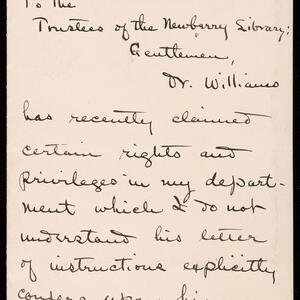 To the
Trustees of the Newberry Library;
Gentlemen,
Dr. Williams
has recently claimed
certain rights and
privileges in my depart-
ment which I do not
understand his letter
of instructions explicitly